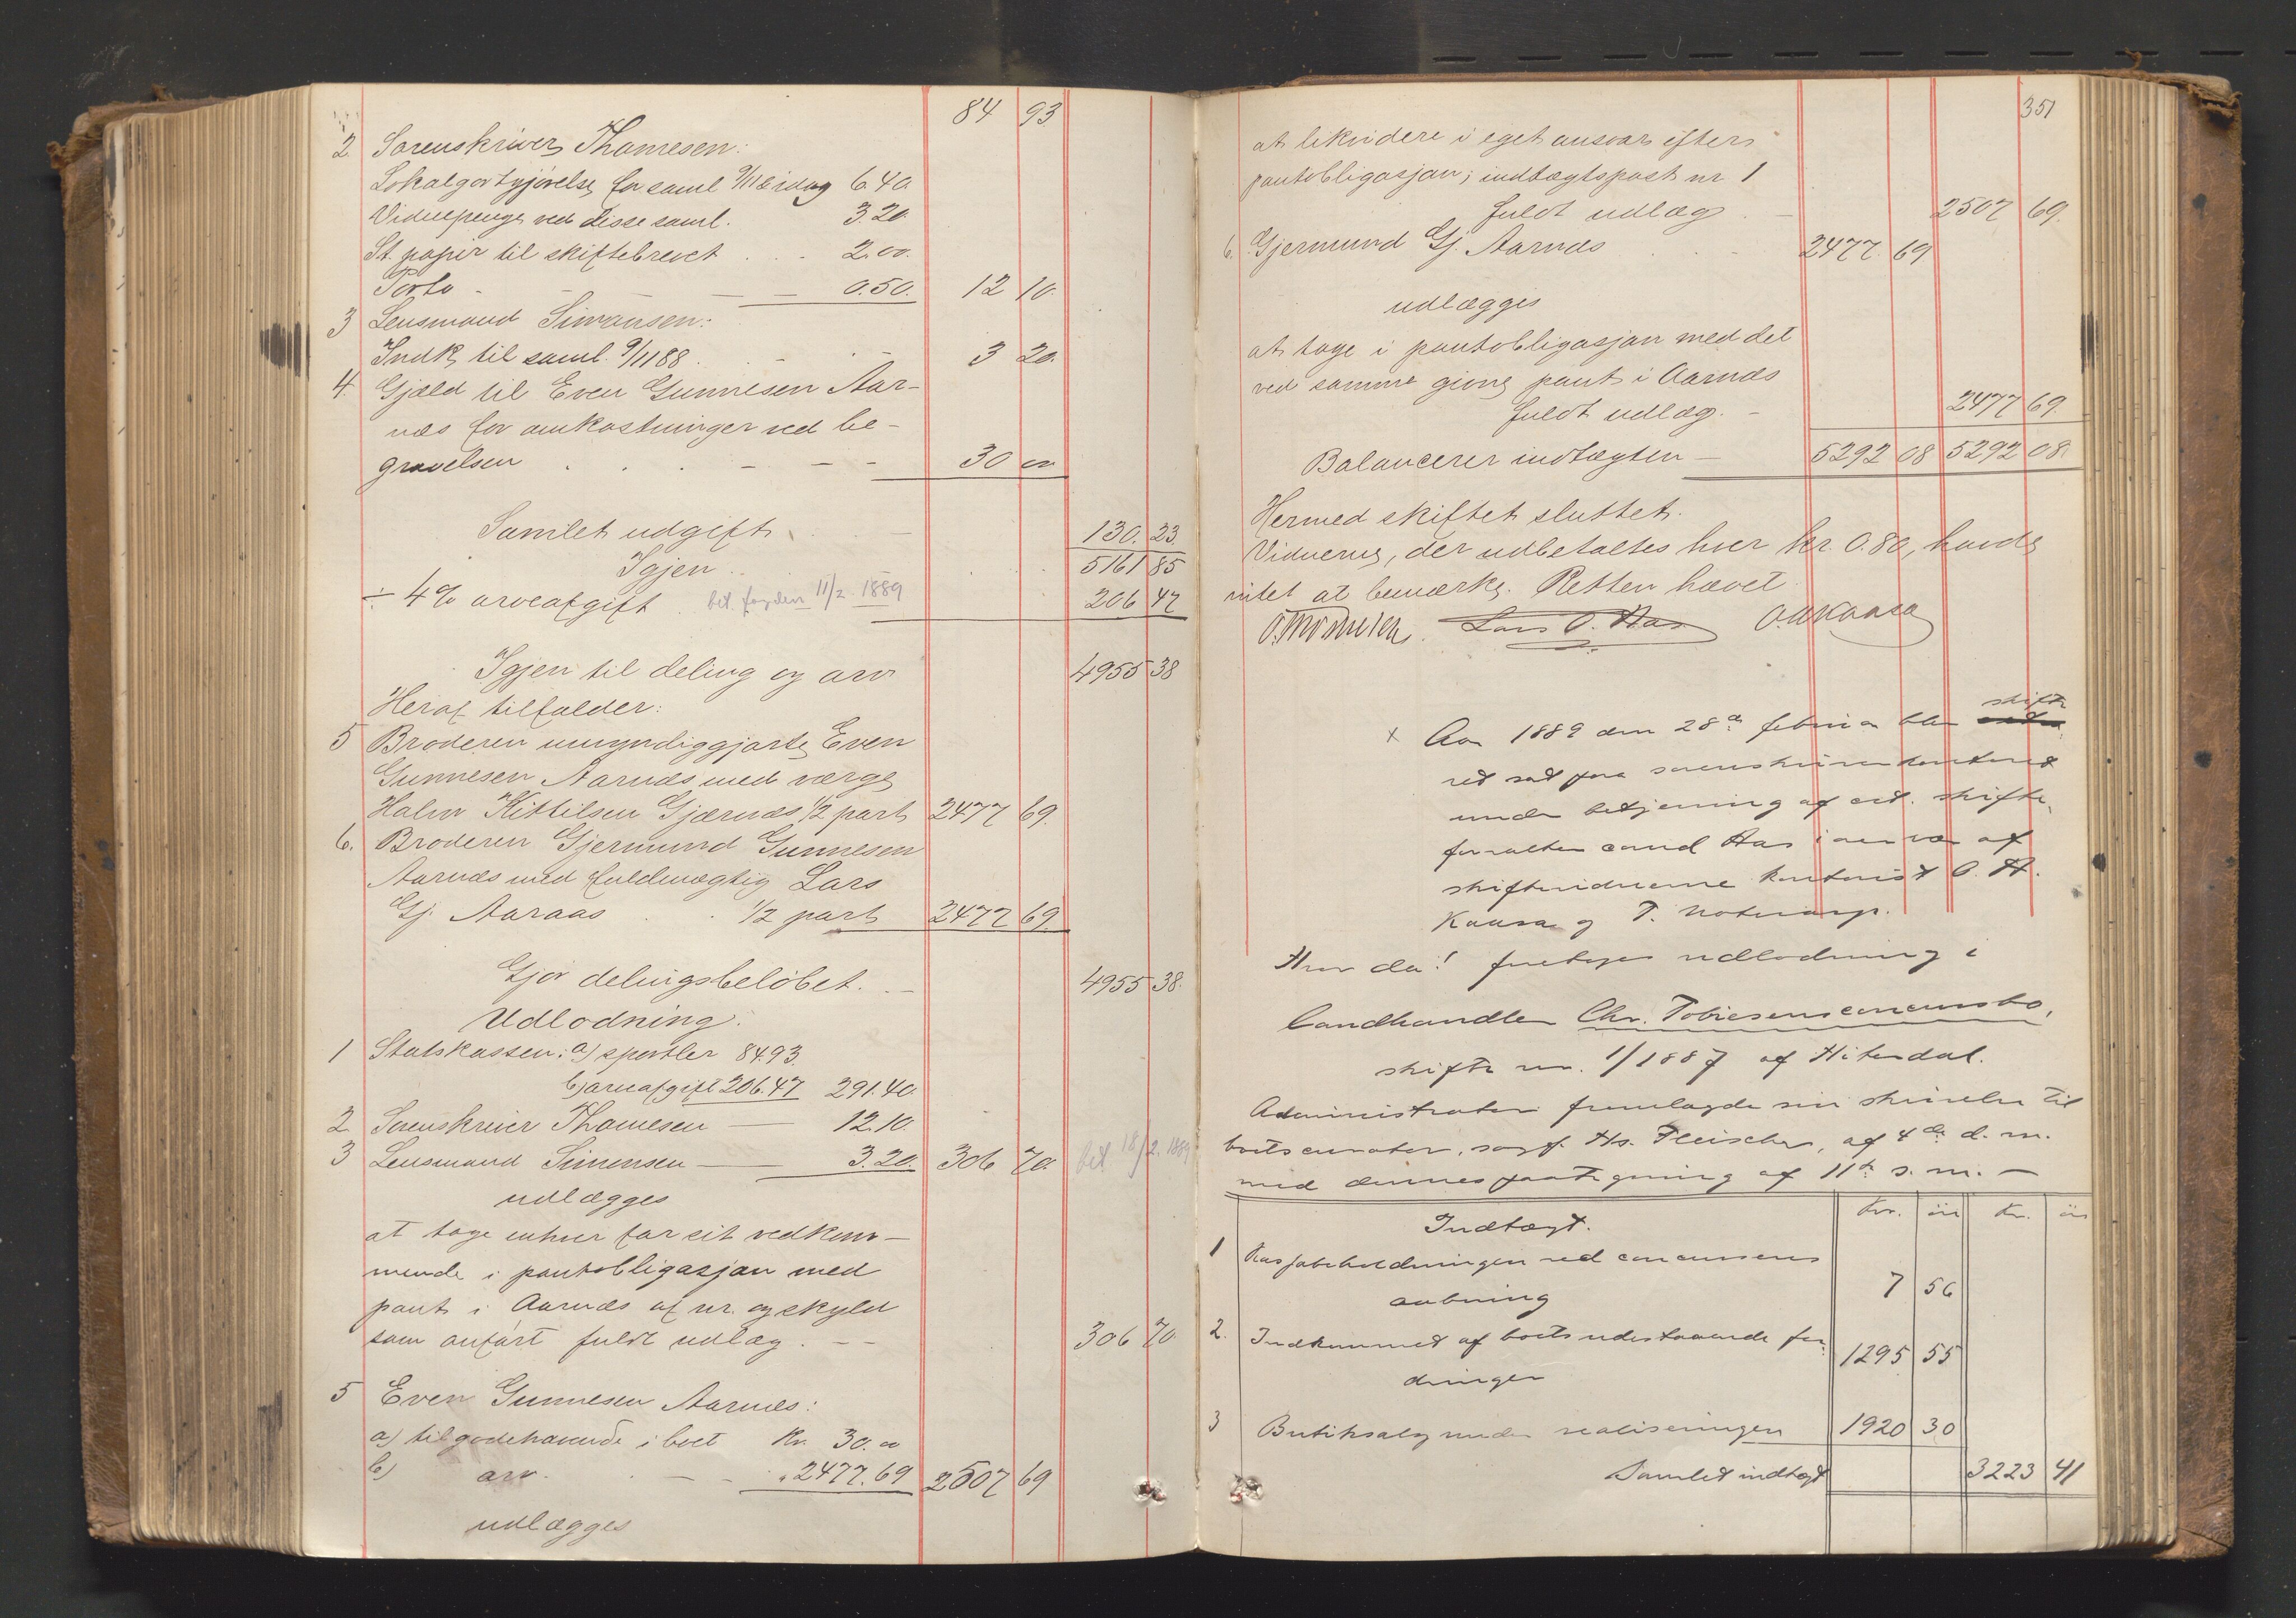 84 93
2 Sorenskriver Thomesen:
Lokalgodtgjørelse for saml 9/11 & idag 6.40
Vidnepenge ved disse saml. 3.20
St. papir til skiftebrevet . . - 2.00.
Porto - — — 0.50. 12 10.
3 Lensmand Simonsen:
Indk. til saml. 9/11 88 . - . - 3 20.
4. Gjæld til Even Gunnesen Aar-
næs for omkostninger ved be-
gravelsen . . . - - - 30 00
Samlet udgift. — 130. 23.
Igjen .. . . 5161 85
÷ 4% arveafgift bet. fogden 11/2 1889 206 47
Igjen til deling og arv 4955 38
Heraf tilfalder:
5 Broderen umyndiggjorte Even
Gunnesen Aarnæs med værge
Halvor Kittilsen Gjærnæs 1/2 part 2477 69.
6. Broderen Gjermund Gunnesen
Aarnæs med fuldmægtig Lars
Gj. Aaraas . . 1/2 part 2477 69.
Gjør delingsbeløbet. . — 4955 38.
Udlodning.
1 Statskassen: a) sportler 84.93
b) arveafgift 206.47 291.40.
2 Sorenskriver Thomesen — 12.10.
3 Lensmand Simonsen — 3.20. 306 70. bet. 18/2. 1889
udlægges
at tage enhver for sit vedkom-
mende i pantobligasjon med
pant i Aarnæs af nr. og skyld
som anført fuldt udlæg . — 306 70
5 Even Gunnesen Aarnæs:
a) tilgodehavende i boet Kr. 30.00
b) arv. . — - „ 2477.69 2507 69
udlægges
351
at likvidere i eget ansvar efter
pantobligasjon; indtægtspost nr 1
fuldt udlæg . — 2507 69.
6. Gjermund Gj. Aarnæs . . - 2477 69
udlægges
at tage i pantobligasjon med det
ved samme givne pant i Aarnæs
fuldt udlæg. - 2477 69.
Balancerer indtægten — 5292 08 5292 08
Hermed skiftet sluttet.
Vidnerne, der udbetaltes hver kr. 0.80, havde
intet at bemærke. Retten hævet
Lars O. Aas O. A. Kaasa
x Aar 1889 den 28de februar blev skifte
ret sat paa sorenskriverkontoret
under betjening af cst. skifte-
forvalter cand Aas i overvær af
skiftevidnerne kontorist O. A.
Kaasa og T. Noterarp.
Hvor da! foretoges udlodning i
landhandler Chr. Tobiesens concursbo,
skifte nr. 1/1887 af Hiterdal.
Administrator fremlagde sin skrivelse til
boets curator, sagf. Hs. Fleischer, af 4de d. m.
med dennes paategning af 11te s. m. —
Indtægt. Kr. øre Kr. øre
1 Kassabeholdningen ved concursens
aabning 7 56
2. Indkommet af boets udestaaende for-
dringer 1295 55
3 Butiksalg under realiseringen 1920 30
Samlet indtægt 3223 41